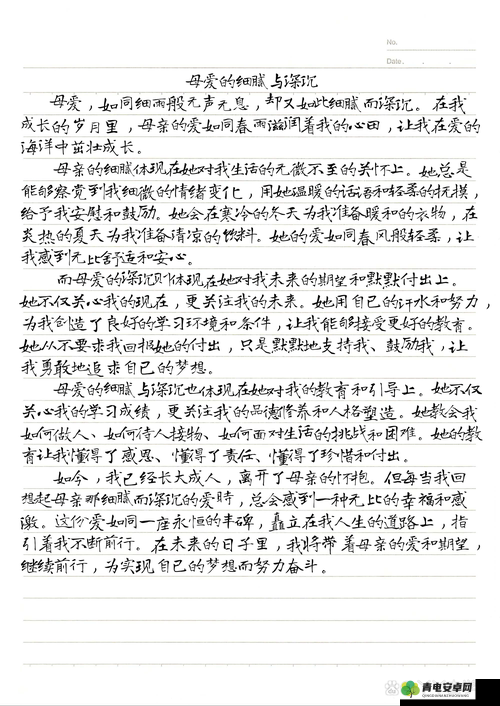 No.
Date.
母爱的细腻与深沉
母爱，如同细雨般无声无息，却又如此细腻而深沉。在我
成长的岁月里，母亲的爱如同春雨滋润着我的心田，让我在爱的
海洋中茁壮成长。
母亲的细腻体现在她对我生活的无微不至的关怀上。她总是
能够察觉到我细微的情绪变化，用她温暖的话语和轻柔的抚摸，
给予我安慰和鼓励。她会在寒冷的冬天为我准备暖和的衣物，在
炎热的夏天为我准备清凉的饮料。她的爱如同春风般轻柔，让
我感到无比舒适和安心。
而母爱的深沉则体现在她对我未来的期望和默默付出上。
她不仅关心我的现在，更关注我的未来。她用自己的汗水和努力，
为我创造了良好的学习环境和条件，让我能够接受更好的教育。
她从不要求我回报她的付出，只是默默地支持我、鼓励我，让
我勇敢地追求自己的梦想。
母爱的细腻与深沉也体现在她对我的教育和引导上。她不仅
关心我的学习成绩，更关注我的品德修养和人格塑造。她教会我
如何做人、如何待人接物、如何面对生活的挑战和困难。她的教
育让我懂得了感恩、懂得了责任、懂得了珍惜和付出。
如今，我已经长大成人，离开了母亲的怀抱。但每当我回
想起母亲那细腻而深沉的爱时，总会感到一种无比的幸福和感
激。这份爱如同一座永恒的丰碑，矗立在我人生的道路上，指
引着我不断前行。在未来的日子里，我将带着母亲的爱和期望，
继续前行，为实现自己的梦想而努力奋斗。
青电安卓网